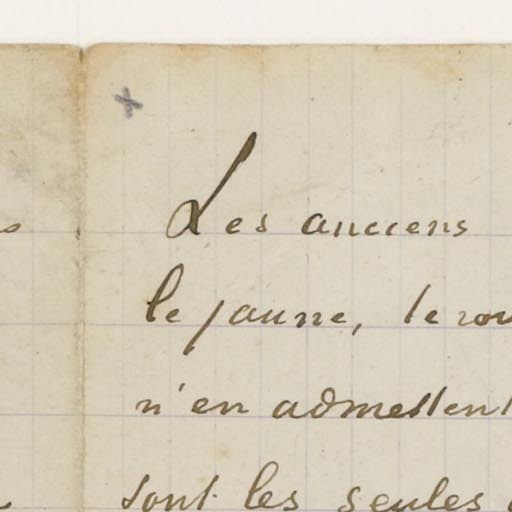 Les anciens
le jaune, le rou
n'en admettent
sont les seules